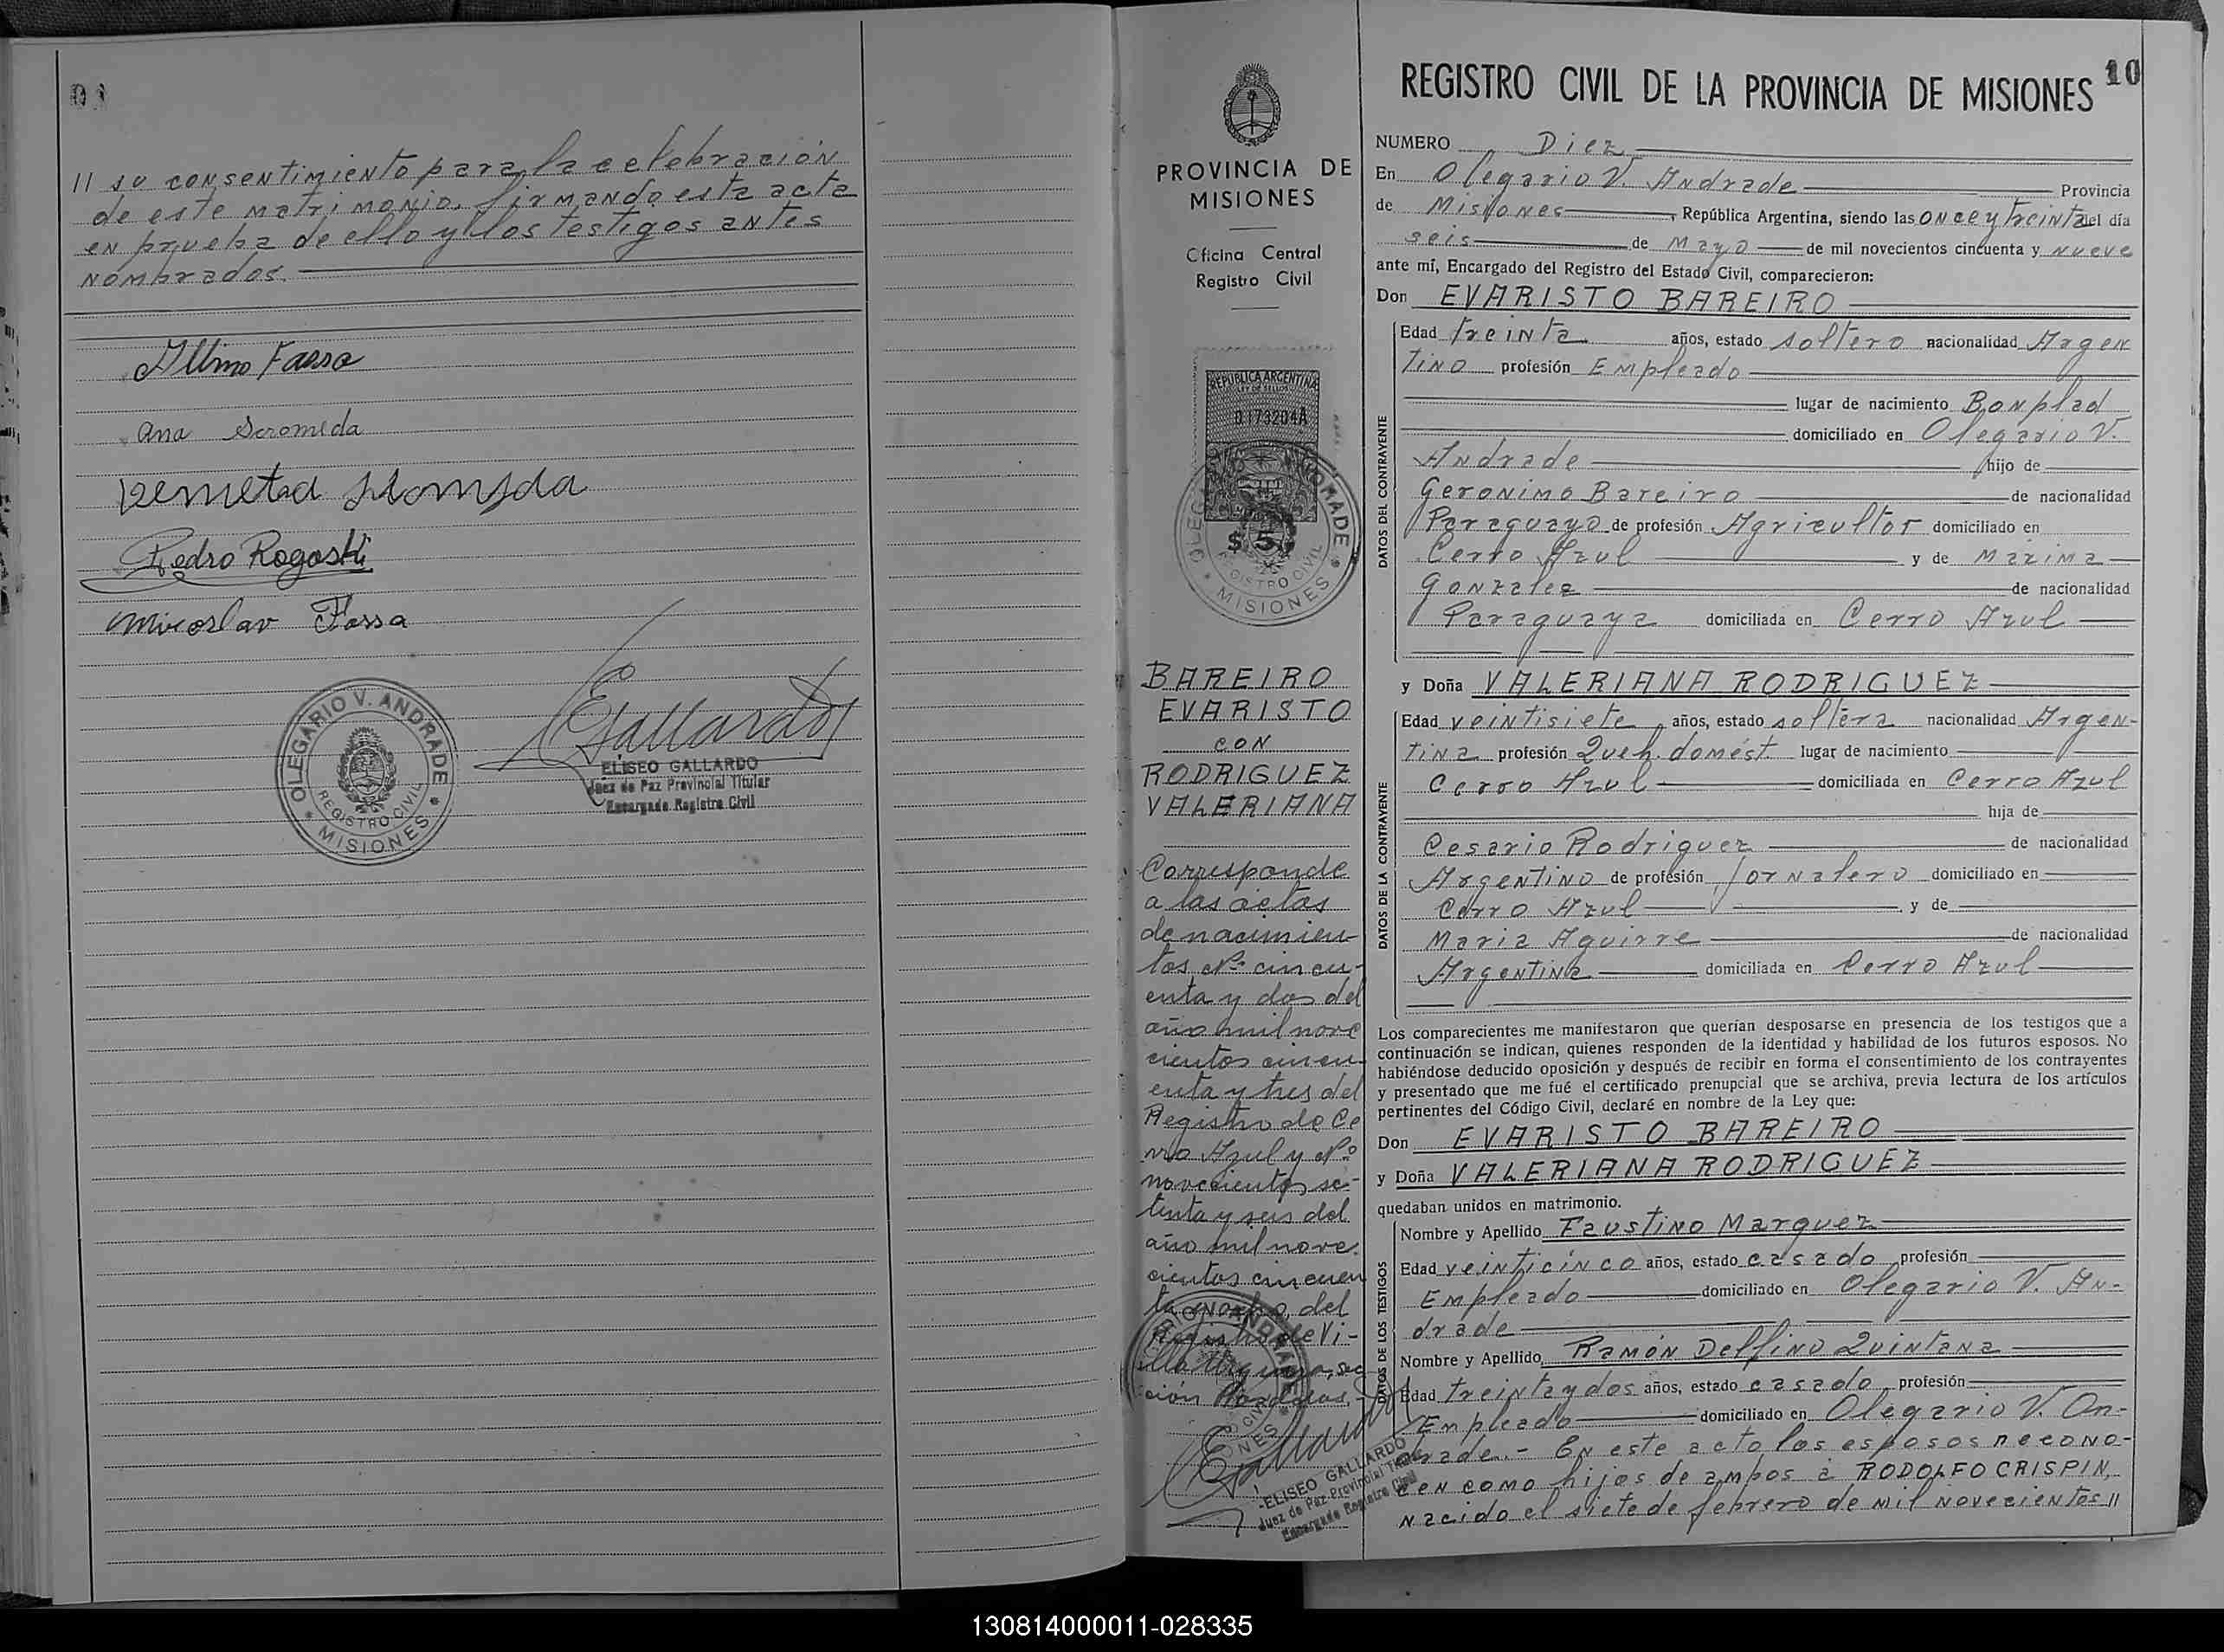 09
// su consentimiento para la celebración
de este matrimonio, firmando esta acta
en prueba de ello y los testigos antes
nombrados.
Albino Fassa
Ana Scromeda
Pedro Rogoski
Miroslav Fassa
OLEGARIO V. ANDRADE
REGISTRO CIVIL
* MISIONES *
EGallardo
ELISEO GALLARDO
Juez de Paz Provincial Titular
Encargado Registro Civil
PROVINCIA DE
MISIONES
Oficina Central
Registro Civil
REPUBLICA ARGENTINA
LEY DE SELLOS
0.173204A
$ 5
OLEGARIO V. ANDRADE
REGISTRO CIVIL
* MISIONES *
BAREIRO
EVARISTO
CON
RODRIGUEZ
VALERIANA
Corresponde
a las actas
de nacimien-
tos Nº cincu-
enta y dos del
año mil nove
cientos cincu-
enta y tres del
Registro de Ce
rro Azul y Nº
novecientos se-
tenta y seis del
año mil nove.
cientos cincuen
ta y ocho del
Registro de Vi-
lla Urquiza, sec
ción Posadas.-
EGallardo
-ELISEO GALLARDO
Juez de Paz Provincial Titular
Encargado Registro Civil
10
REGISTRO CIVIL DE LA PROVINCIA DE MISIONES
NUMERO Diez
En Olegario V. Andrade Provincia
de Misiones, República Argentina, siendo las once y treinta del día
seis de Mayo de mil novecientos cincuenta y nueve
ante mí, Encargado del Registro del Estado Civil, comparecieron:
Don EVARISTO BAREIRO
DATOS DEL CONTRAYENTE
Edad treinta años, estado soltero nacionalidad Argen
tino profesión Empleado
lugar de nacimiento Bonplad
domiciliado en Olegario V.
Andrade hijo de
Geronimo Bareiro de nacionalidad
Paraguayo de profesión Agricultor domiciliado en
Cerro Azul y de Maxima
Gonzalez de nacionalidad
Paraguaya domiciliada en Cerro Azul
y Doña VALERIANA RODRIGUEZ
DATOS DE LA CONTRAYENTE
Edad veintisiete años, estado soltera nacionalidad Argen-
tina profesión Queh. domést. lugar de nacimiento
Cerro Azul domiciliada en Cerro Azul
hija de
Cesario Rodriguez de nacionalidad
Argentino de profesión Jornalero domiciliado en
Cerro Azul y de
Maria Aguirre de nacionalidad
Argentina domiciliada en Cerro Azul
Los comparecientes me manifestaron que querían desposarse en presencia de los testigos que a
continuación se indican, quienes responden de la identidad y habilidad de los futuros esposos. No
habiéndose deducido oposición y después de recibir en forma el consentimiento de los contrayentes
y presentado que me fué el certificado prenupcial que se archiva, previa lectura de los artículos
pertinentes del Código Civil, declaré en nombre de la Ley que:
Don EVARISTO BAREIRO
y Doña VALERIANA RODRIGUEZ
quedaban unidos en matrimonio.
DATOS DE LOS TESTIGOS
Nombre y Apellido Faustino Marquez
Edad veinticinco años, estado casado profesión
Empleado domiciliado en Olegario V. An-
drade
Nombre y Apellido Ramón Delfino Quintana
Edad treinta y dos años, estado casado profesión
Empleado domiciliado en Olegario V. An-
drade.- En este acto los esposos recono-
cen como hijos de ambos a RODOLFO CRISPIN,
nacido el siete de febrero de mil novecientos //
130814000011-028335